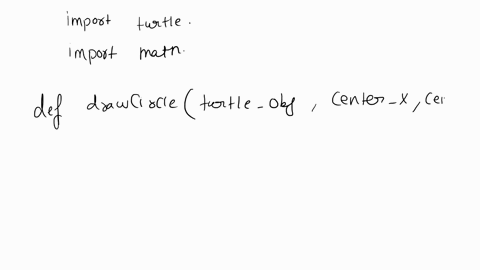 import turtle.
import math.
def drawCircle(turtle-obj, Center-X, Ce